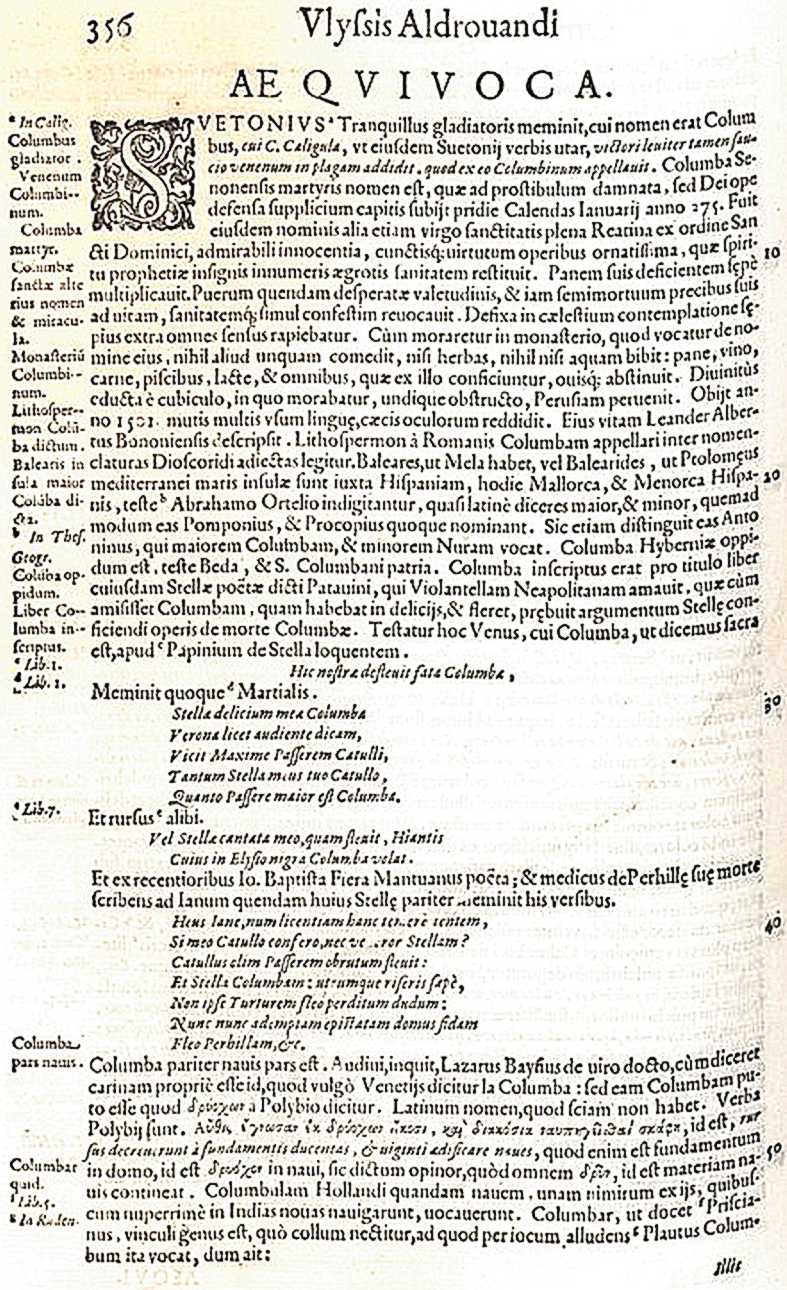 356 Vlyſsis Aldrouandi
AEQVIVOCA.
SVETONIVSᵃ Tranquillus gladiatoris meminit, cui nomen erat Colum
bus, cui C. Caligula, vt eiuſdem Suetonij verbis utar, victori leuiter tamen ſau-
cio venenum in plagam addidit. quod ex eo Columbinum appellauit. Columba Se-
nonenſis martyris nomen eſt, quæ ad proſtibulum damnata, ſed Dei ope
defenſa ſupplicium capitis ſubijt pridie Calendas Ianuarij anno 275. Fuit
eiuſdem nominis alia etiam virgo ſanctitatis plena Reatina ex ordine San
cti Dominici, admirabili innocentia, cunctisq; uirtutum operibus ornatiſsima, quæ ſpiri- 10
tu prophetiæ inſignis innumeris ægrotis ſanitatem reſtituit. Panem ſuis deficientem ſępè
multiplicauit. Puerum quendam deſperatæ valetudinis, & iam ſemimortuum precibus ſuis
ad uitam, ſanitatemq; ſimul confeſtim reuocauit. Defixa in cæleſtium contemplatione ſę-
pius extra omnes ſenſus rapiebatur. Cùm moraretur in monaſterio, quod vocatur de no-
mine eius, nihil aliud unquam comedit, niſi herbas, nihil niſi aquam bibit: pane, vino,
carne, piſcibus, lacte, & omnibus, quæ ex illo conficiuntur, ouisq; abſtinuit. Diuinitùs
educta è cubiculo, in quo morabatur, undique obſtructo, Peruſiam peruenit. Obijt an-
no 1501. mutis multis vſum linguę, cæcis oculorum reddidit. Eius vitam Leander Alber-
tus Bononienſis deſcripſit. Lithoſpermon à Romanis Columbam appellari inter nomen-
claturas Dioſcoridi adiectas legitur. Baleares, ut Mela habet, vel Balearides, ut Ptolomeus
mediterranei maris inſulæ ſunt iuxta Hiſpaniam, hodie Mallorca, & Menorca Hiſpa- 20
nis, teſteᵇ Abrahamo Ortelio indigitantur, quaſi latinè diceres maior, & minor, quemad
modum eas Pomponius, & Procopius quoque nominant. Sic etiam diſtinguit eas Anto
ninus, qui maiorem Columbam, & minorem Nuram vocat. Columba Hyberniæ oppi-
dum eſt, teſte Beda, & S. Columbani patria. Columba inſcriptus erat pro titulo liber
cuiuſdam Stellæ poëtæ dicti Patauini, qui Violantellam Neapolitanam amauit, quæ cùm
amiſiſſet Columbam, quam habebat in delicijs, & fleret, prębuit argumentum Stellę con-
ficiendi operis de morte Columbæ. Teſtatur hoc Venus, cui Columba, ut dicemus ſacra
eſt, apudᶜ Papinium de Stella loquentem.
Hic noſtræ defleuit fata Columbæ,
Meminit quoqueᵈ Martialis. 30
Stellæ delicium mea Columba
Verona licet audiente dicam,
Vicit Maxime Paſſerem Catulli,
Tantum Stella meus tuo Catullo,
Quanto Paſſere maior eſt Columba.
Et rurſusᵉ alibi.
Vel Stellæ cantata meo, quam fleuit, Hiantis
Cuius in Elyſio nigra Columba volat.
Et ex recentioribus Io. Baptiſta Fiera Mantuanus poëta; & medicus de Perhillę ſuę morte
ſcribens ad Ianum quendam huius Stellę pariter meminit his verſibus.
Heus Iane, num licentiam hanc temerè tentem, 40
Si meo Catullo confero, nec Stellam?
Catullus olim Paſſerem obrutum fleuit:
Et Stella Columbam: utrumque riſeris ſæpè,
Non ipſe Turturem fleo perditum dudum:
Nunc nunc ademptam domus fidam
Fleo Perhillam, &c.
Columba pariter nauis pars eſt. Audini, inquit, Lazarus Bayfius de uiro docto, cùm diceret
carinam propriè eſſe id, quod vulgò Venetijs dicitur la Columba: ſed eam Columbam pu-
to eſſe quod δρύοχον à Polybio dicitur. Latinum nomen, quod ſciam non habet. Verba
Polybij ſunt. id eſt, rur
ſus decreuerunt à fundamentis ducentas, & uiginti ædificare naues, quod enim eſt fundamentum
in domo, id eſt δρύοχον in naui, ſic dictum opinor, quòd omnem δρῦν, id eſt materiam na- 50
uis contineat. Columbulam Hollandi quandam nauem, unam nimirum ex ijs, quibuſ-
cum nuperrimè in Indias nouas nauigarunt, uocauerunt. Columbar, ut docetᶠ Priſcia-
nus, vinculi genus eſt, quò collum nectitur, ad quod per iocum alludensᵍ Plautus Colum-
bum ita vocat, dum ait:
illis
ᵃ In Calig.
Columbus
gladiator.
Venenum
Columbi-
num.
Columba
martyr.
Columbæ
ſanctæ alte
rius nomen
& miracu-
la.
Monaſteriũ
Columbi-
num.
Lithoſper-
mon Colũ-
ba dictum.
Balearis in
ſula maior
Colũba di-
cta.
ᵇ In Theſ.
Geogr.
Colũba op-
pidum.
Liber Co-
lumba in-
ſcriptus.
ᶜ Lib. 1.
ᵈ Lib. 1.
ᵉ Lib. 7.
Columba
pars nauis.
Columbar
quid.
ᶠ Lib. 5.
ᵍ In Ruden.